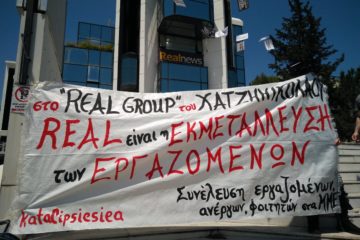 Realnews
στο "REAL GROUP" του ΧΑΤΖΗΝΙΚΟΛΑΟΥ
REAL είναι η ΕΚΜΕΤΑΛΛΕΥΣΗ
των ΕΡΓΑΖΟΜΕΝΩΝ
Συνέλευση εργαζομένων,
ανέργων, φοιτητών στα ΜΜΕ
katalipsiesiea